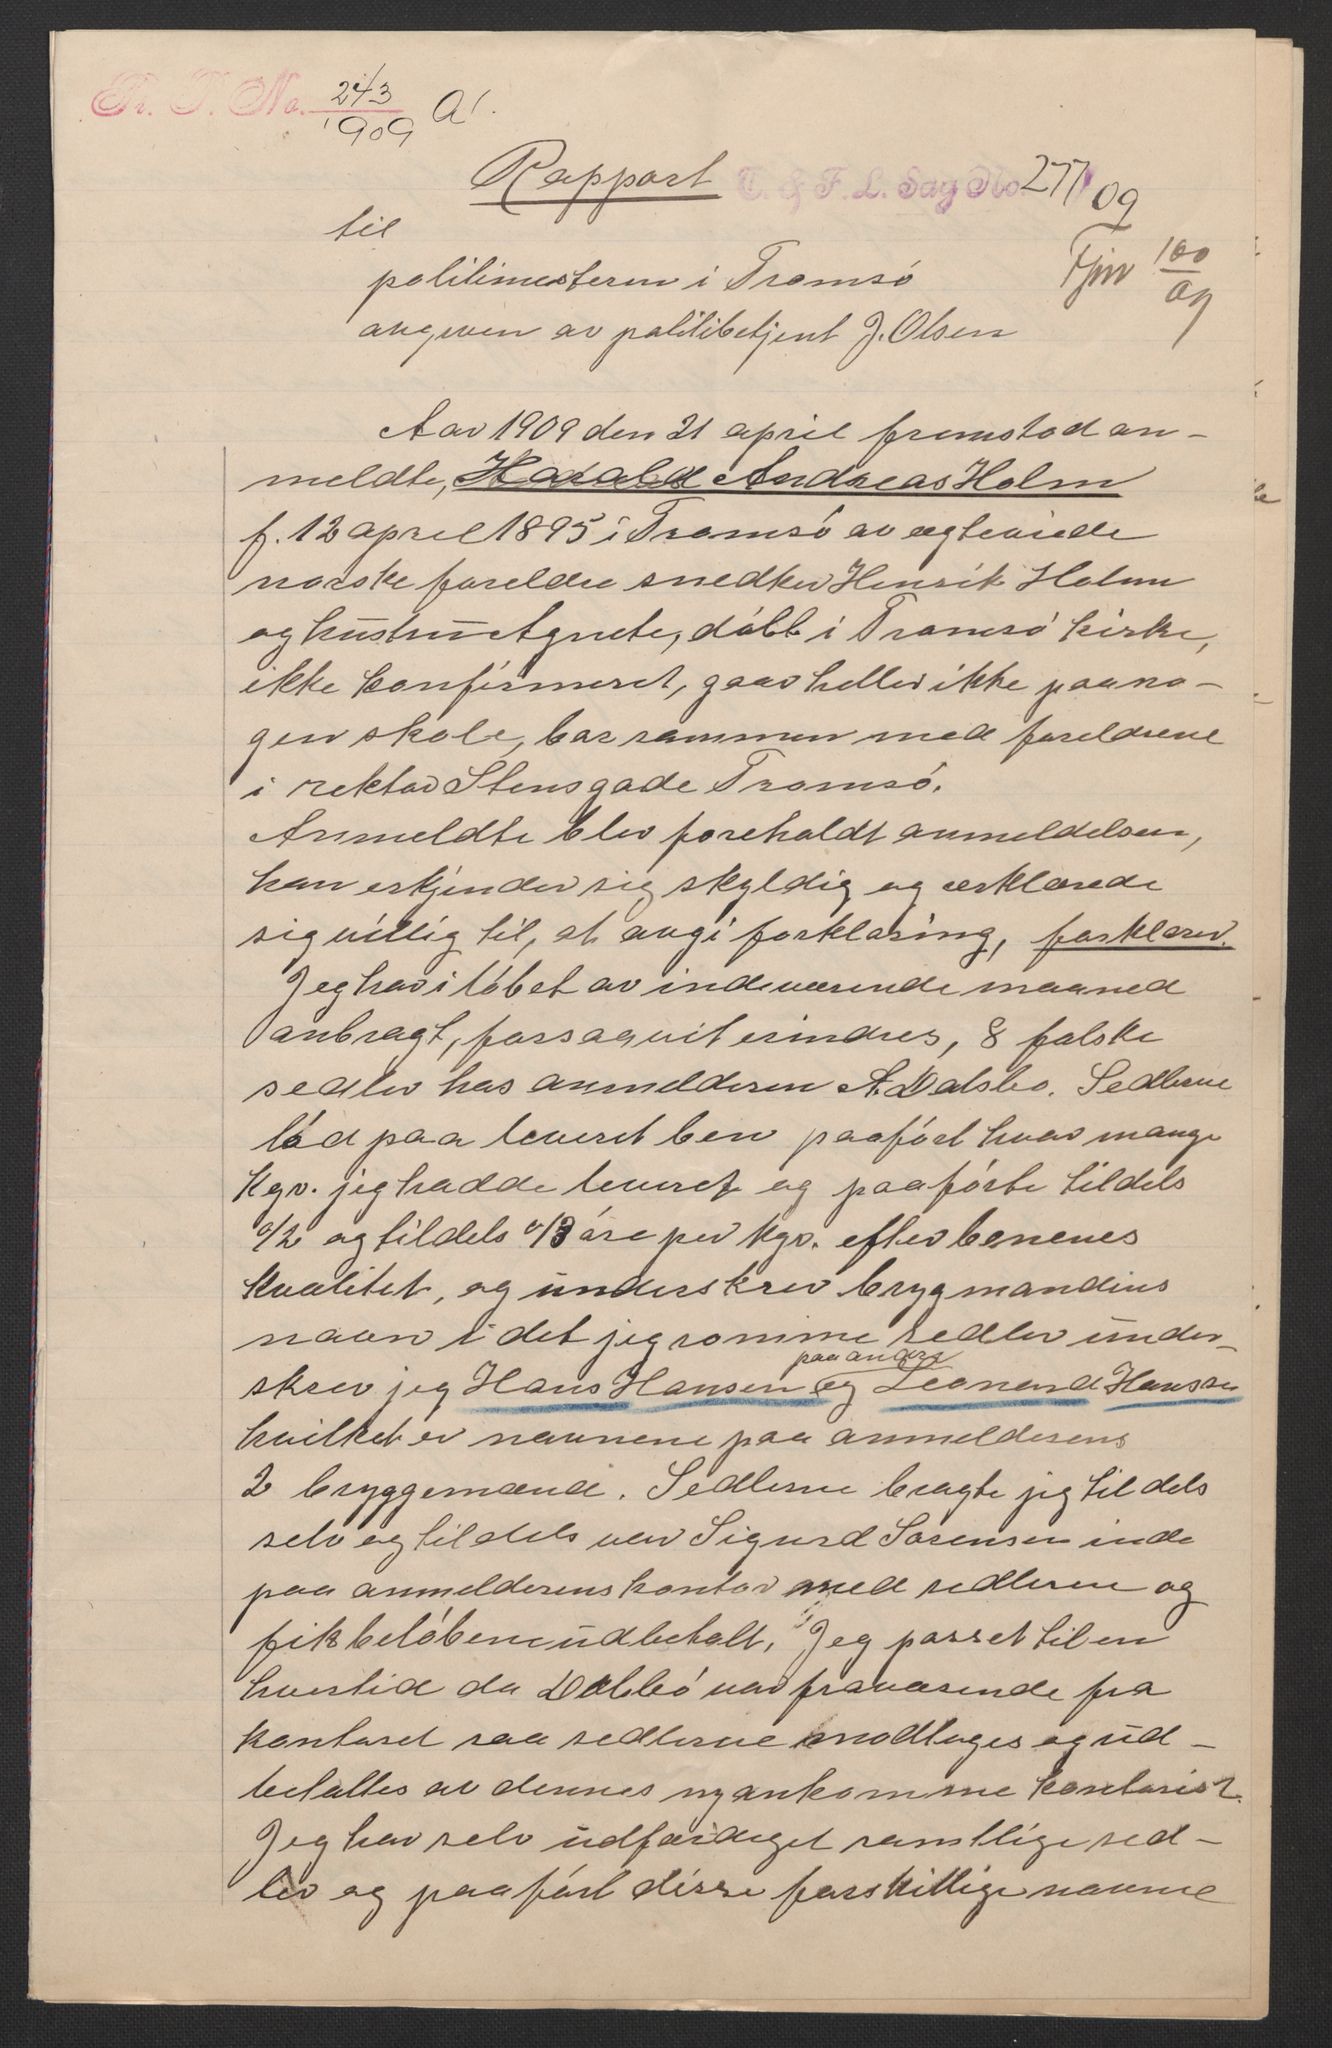 Pr. P. No. 243/1909 A1.
Rapport T. & F. L. Sag No. 277/09
til
politimesteren i Tromsö 100/09
avgiven av politibetjent J. Olsen
Aar 1909 den 21 april fremstod an-
meldte, Harald Andreas Holm
f. 12 april 1895 i Tromsö av ægteviede
norske foreldre snedker Henrik Holm
og hustru Agnete, döbt i Tromsö kirke,
ikke konfirmeret, gaar heller ikke paa no-
gen skole, bor sammen med foreldrene
i rektor Stensgade Tromsö.
Anmeldte blev foreholdt anmeldelsen,
han erkjender sig skyldig og erklærede
sig villig til, at avgi forklaring, forklarer.
Jeg har i löbet av indeværende maaned
anbragt, forsaavit erindres, 8 falske
sedler hos anmelderen A. Dalsbo. Sedlerne
löd paa leveret ben paafört hvor mange
kgr. jeg hadde leveret og paaförte tildels
a/2 og tildels a/3 öre per kgr. efter benenes
kvalitet, og underskrev brygmandens
navn i det jeg somme sedler under-
skrev jeg Hans Hansen og paa andre Leonard Hansen
hvilket er navnene paa anmelderens
2 bryggemænd. Sedlerne bragte jeg tildels
selv og tildels var Sigurd Sörensen inde
paa anmelderens kontor med sedlerne og
fik belöbene udbetalt. Jeg passet til en
hver tid da Dalsbö var fraværende fra
kontoret saa sedlerne modtoges og ud-
betaltes av dennes nyankomne kontorist.
Jeg har selv udfærdiget samtlige sed-
ler og paafört disse forskillige navne